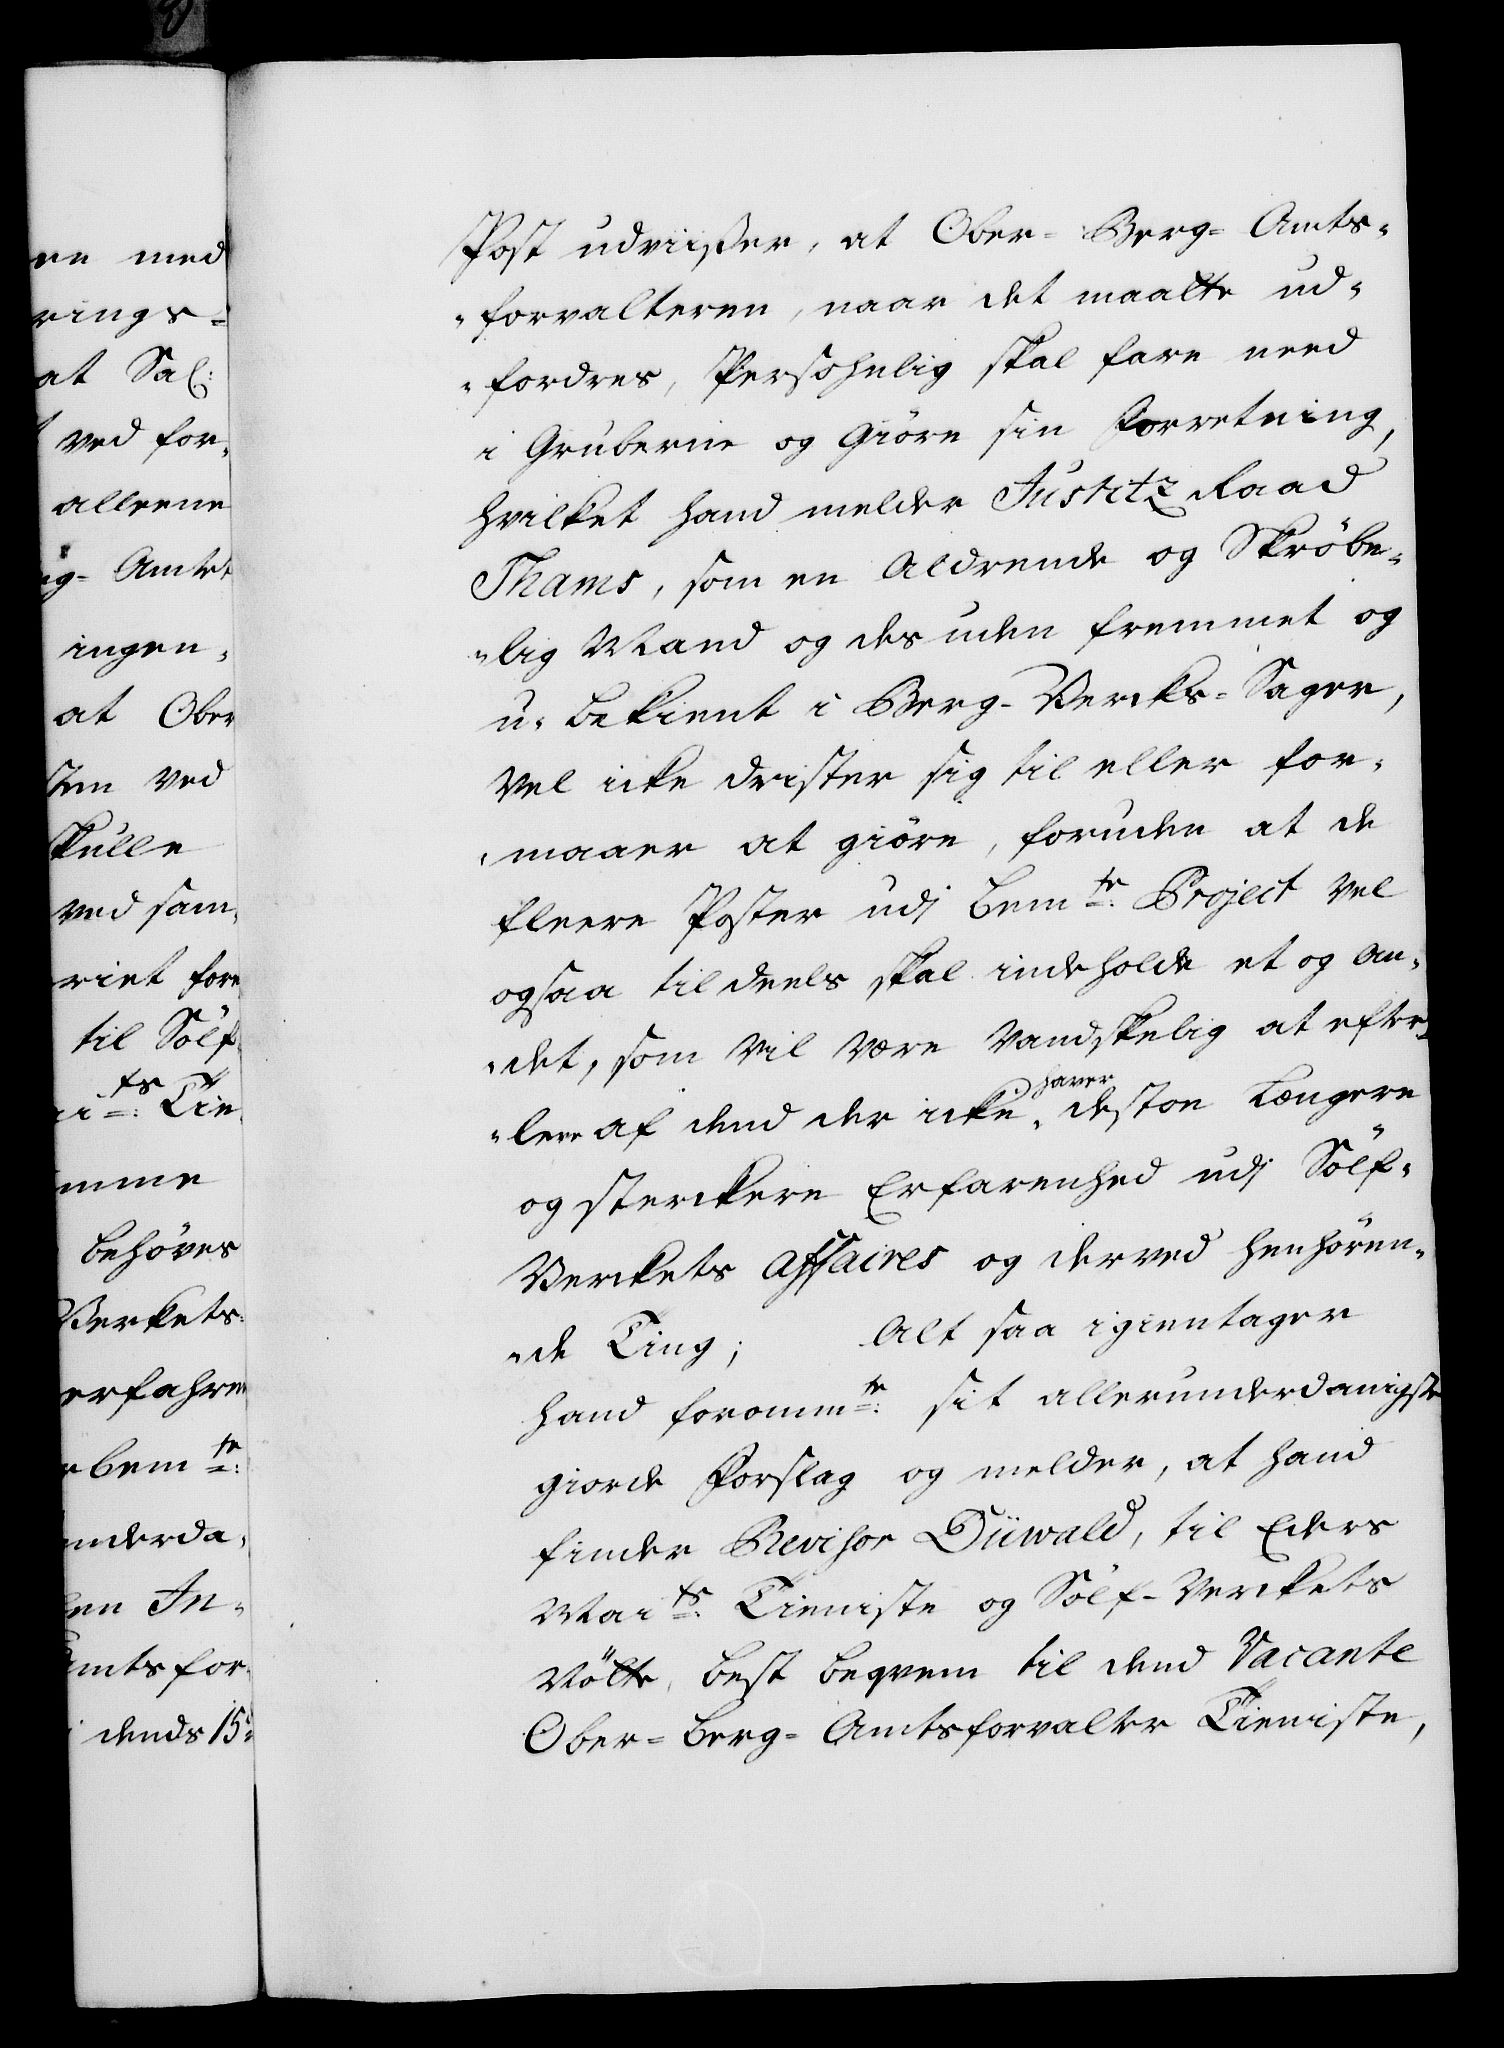 en med
rings-
at Sal:
ved for-
alleene
ig- Amtet
ingen-
at Ober
sten ved
skulle
ved sam-
riet fore
til Sölf
ii ts: Tie
mme
behöves
Verkets
erfahren
rbem te:
nderda-
en In-
Amtsfor-
dends 15
Post udviiser, at Ober- Berg- Amts-
-forvalteren, naar det maatte ud-
-fordres, Persohnlig skal fare need
i Gruberne og Giöre sin Forretning,
hvilket hand melder Justitz Raad
Thams, som en Aldrende og Skröbe-
-lig Mand og des uden fremmet og
u-bekient i Berg-Vercks-Sager,
vel icke drister sig til eller for-
-maaer at giöre, foruden at de
fleere Poster udj bem te: Project vel
ogsaa til deels skal indeholde et og An-
-det, som vil være Vandskelig at efter-
haver
-leve af dend der icke, desto Længere
og sterckere Erfarenhed udj Sölf-
Verckets Affaires og derved henhören-
-de Ting; Alt saa igientager
hand forom te: sit allerunderdanigste
giorde Forslag og melder, at hand
finder Revisor Düwald, til Eders
Mai ts: Tieniste og Sölf-Verckets
Nötte, best beqvem til dend Vacante
Ober- Berg- Amtsforvalter Tieniste,